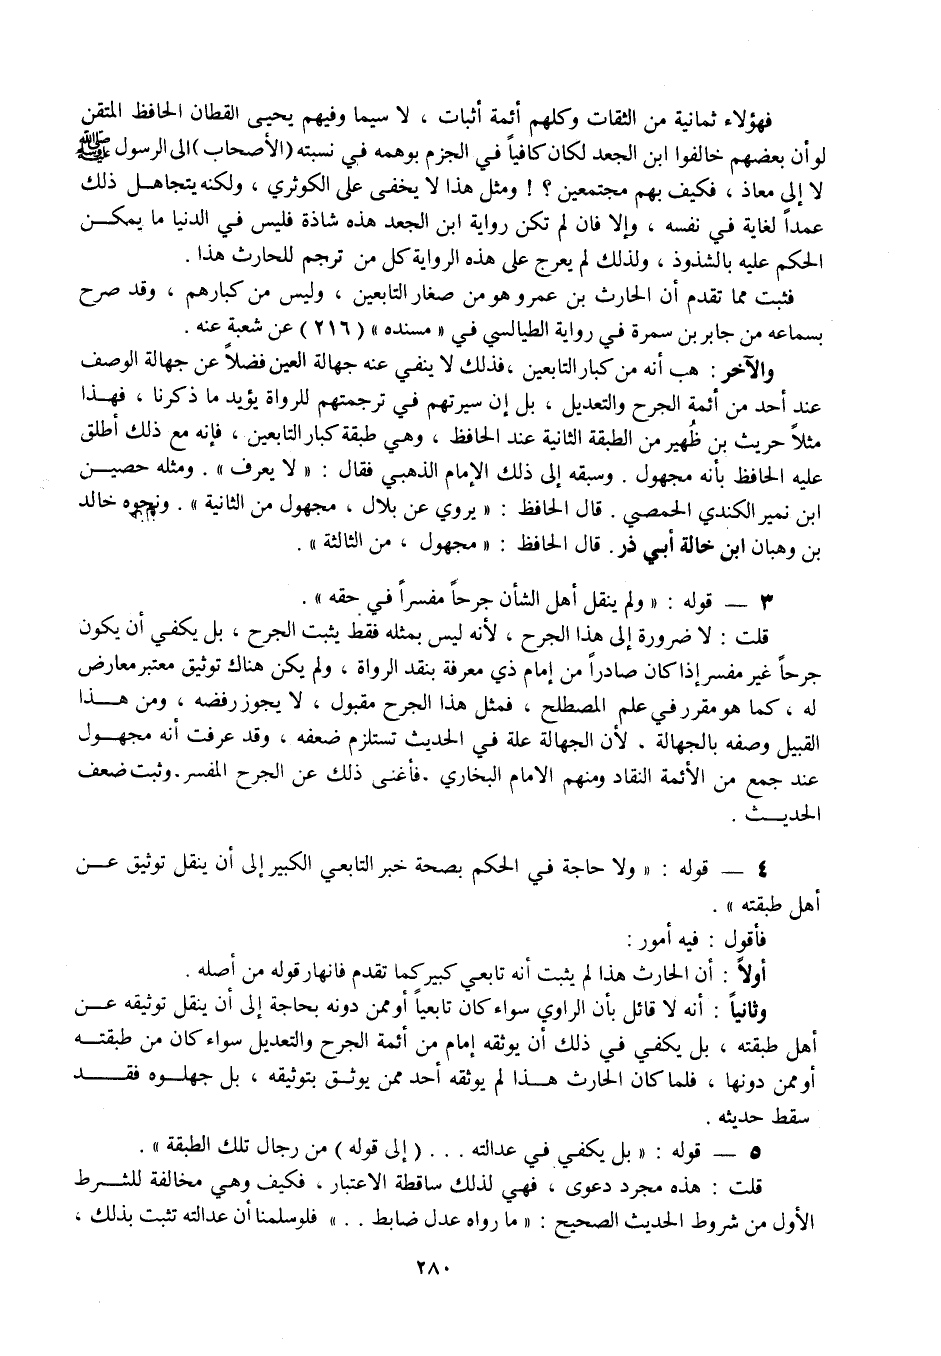 فهؤلاء ثمانية من الثقات وكلهم أئمة أثبات ، لا سيما وفيهم يحيى القطان الحافظ المتقن
لو أن بعضهم خالفوا ابن الجعد لكان كافياً في الجزم بوهمه في نسبته (الأصحاب) الى الرسول ﷺ
لا إلى معاذ ، فكيف بهم مجتمعين ؟ ! ومثل هذا لا يخفى على الكوثري ، ولكنه يتجاهـل ذلك
عمداً لغاية في نفسه ، وإلا فان لم تكن رواية ابن الجعد هذه شاذة فليس في الدنيا ما يمكـن
الحكم عليه بالشذوذ ، ولذلك لم يعرج على هذه الرواية كل من ترجم للحارث هذا .
فثبت مما تقدم أن الحارث بن عمرو هو من صغار التابعين ، وليس من كبارهم ، وقد صرح
بسماعه من جابر بن سمرة في رواية الطيالسي في « مسنده » ( ٢١٦ ) عن شعبة عنه .
والآخر : هب أنه من كبار التابعين ، فذلك لا ينفي عنه جهالة العين فضلاً عن جهالة الوصف
عند أحد من أئمة الجرح والتعديل ، بل إن سيرتهم في ترجمتهم للرواة يؤيد ما ذكرنا ، فهـذا
مثلاً حريث بن ظُهير من الطبقة الثانية عند الحافظ ، وهي طبقة كبار التابعين ، فإنه مع ذلك أطلق
عليه الحافظ بأنه مجهول . وسبقه إلى ذلك الإمام الذهبي فقال : « لا يعرف » . ومثله حصيـن
ابن نمير الكندي الحمصي . قال الحافظ : « يروي عن بلال ، مجهول من الثانية » . ونحوه خالد
بن وهبان ابن خالة أبي ذر . قال الحافظ : « مجهول ، من الثالثة » .
٣ — قوله : « ولم ينقل أهل الشأن جرحاً مفسراً في حقه » .
قلت : لا ضرورة إلى هذا الجرح ، لأنه ليس بمثله فقط يثبت الجرح ، بل يكفي أن يكون
جرحاً غير مفسر إذا كان صادراً من إمام ذي معرفة بنقد الرواة ، ولم يكن هناك توثيق معتبر معارض
له ، كما هو مقرر في علم المصطلح ، فمثل هذا الجرح مقبول ، لا يجوز رفضه ، ومن هــذا
القبيل وصفه بالجهالة . لأن الجهالة علة في الحديث تستلزم ضعفه ، وقد عرفت أنه مجهـول
عند جمع من الأئمة النقاد ومنهم الامام البخاري . فأغنى ذلك عن الجرح المفسر . وثبت ضعف
الحديـث .
٤ — قوله : « ولا حاجة في الحكم بصحة خبر التابعي الكبير إلى أن ينقل توثيق عـن
أهل طبقته » .
فأقول : فيه أمور :
أولاً : أن الحارث هذا لم يثبت أنه تابعي كبير كما تقدم فانهار قوله من أصله .
وثانياً : أنه لا قائل بأن الراوي سواء كان تابعياً أو ممن دونه بحاجة إلى أن ينقل توثيقه عـن
أهل طبقته ، بل يكفي في ذلك أن يوثقه إمام من أئمة الجرح والتعديل سواء كان من طبقتـه
أو ممن دونها ، فلما كان الحارث هـذا لم يوثقه أحد ممن يوثـق بتوثيقه ، بل جهلـوه فقـد
سقط حديثه .
٥ — قوله : « بل يكفي في عدالته . . . ( إلى قوله ) من رجال تلك الطبقة » .
قلت : هذه مجرد دعوى ، فهي لذلك ساقطة الاعتبار ، فكيف وهي مخالفة للشـرط
الأول من شروط الحديث الصحيح : « ما رواه عدل ضابط . . » فلو سلمنا أن عدالته تثبت بذلك ،
٢٨٠